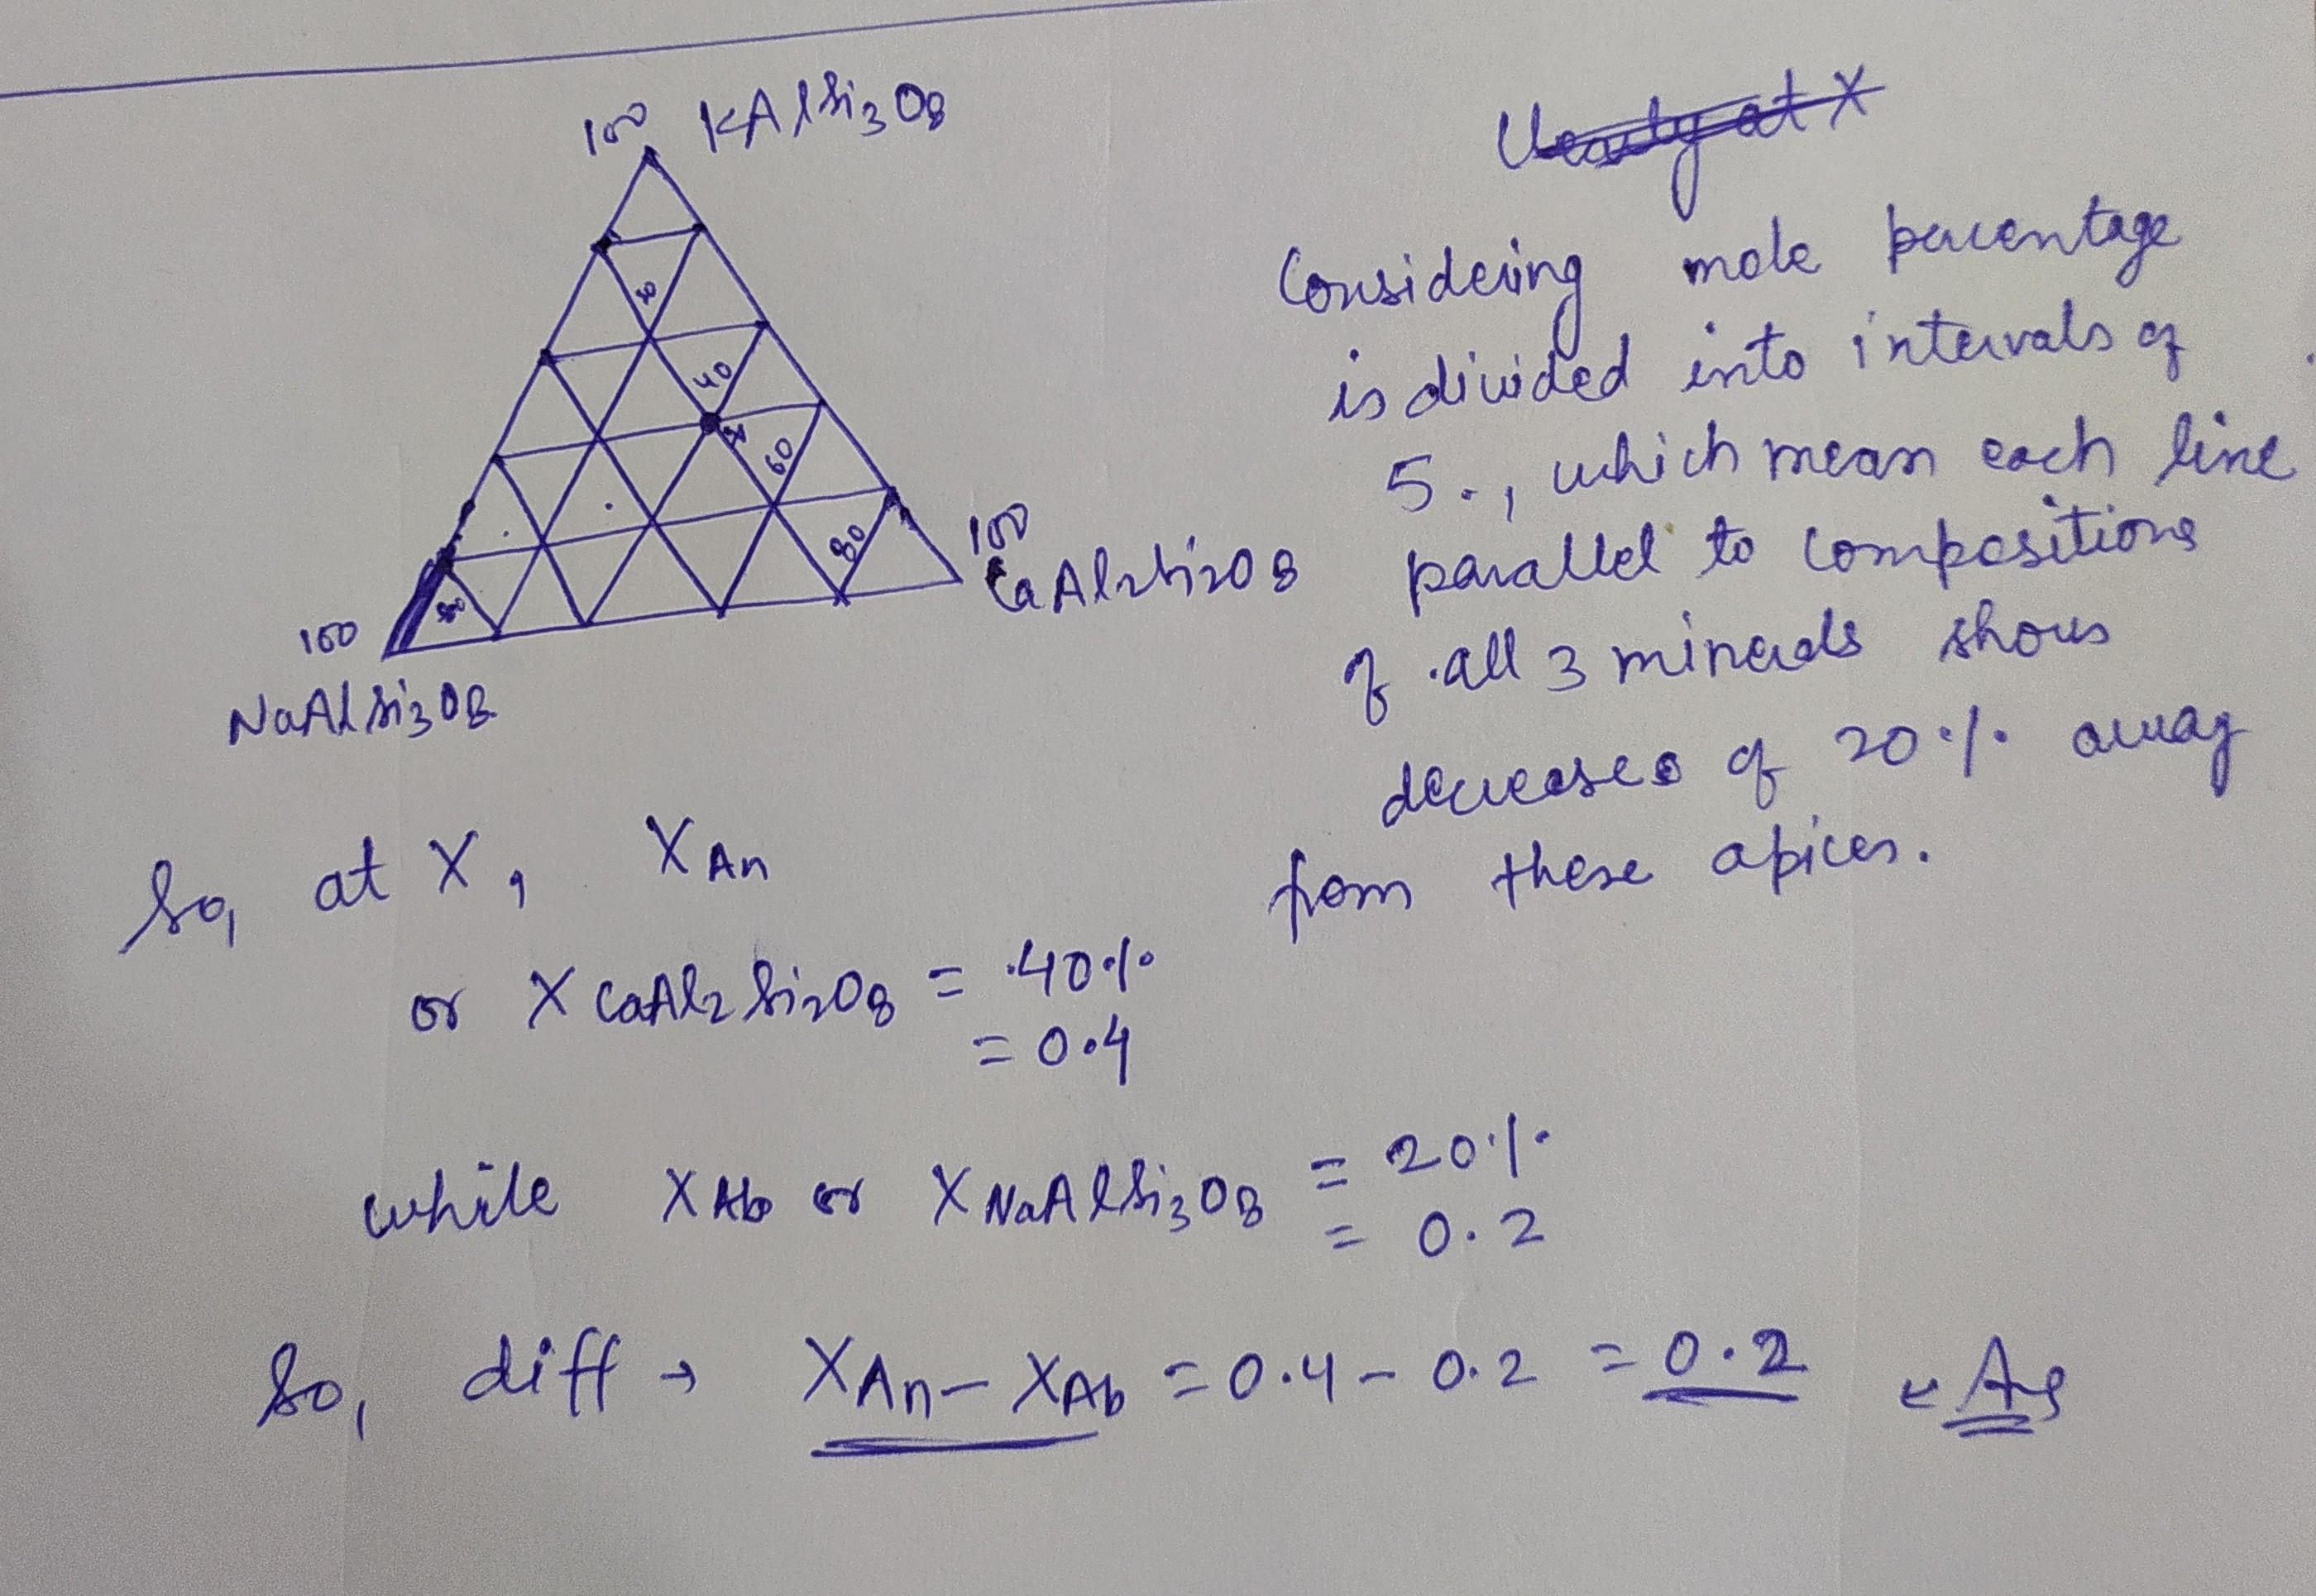 100 KAlSi3O8
20
40
X
60
80
80
100
CaAl2Si2O8
100
NaAlSi3O8
Clearly at X
Considering mole percentage
is divided into intervals of
5., which mean each line
parallel to compositions
of all 3 minerals shows
decreases of 20% away
from these apices.
So, at X, XAn
or X CaAl2Si2O8 = 40%
= 0.4
while XAb or X NaAlSi3O8 = 20%
= 0.2
So, diff → XAn - XAb = 0.4 - 0.2 = 0.2 ← As